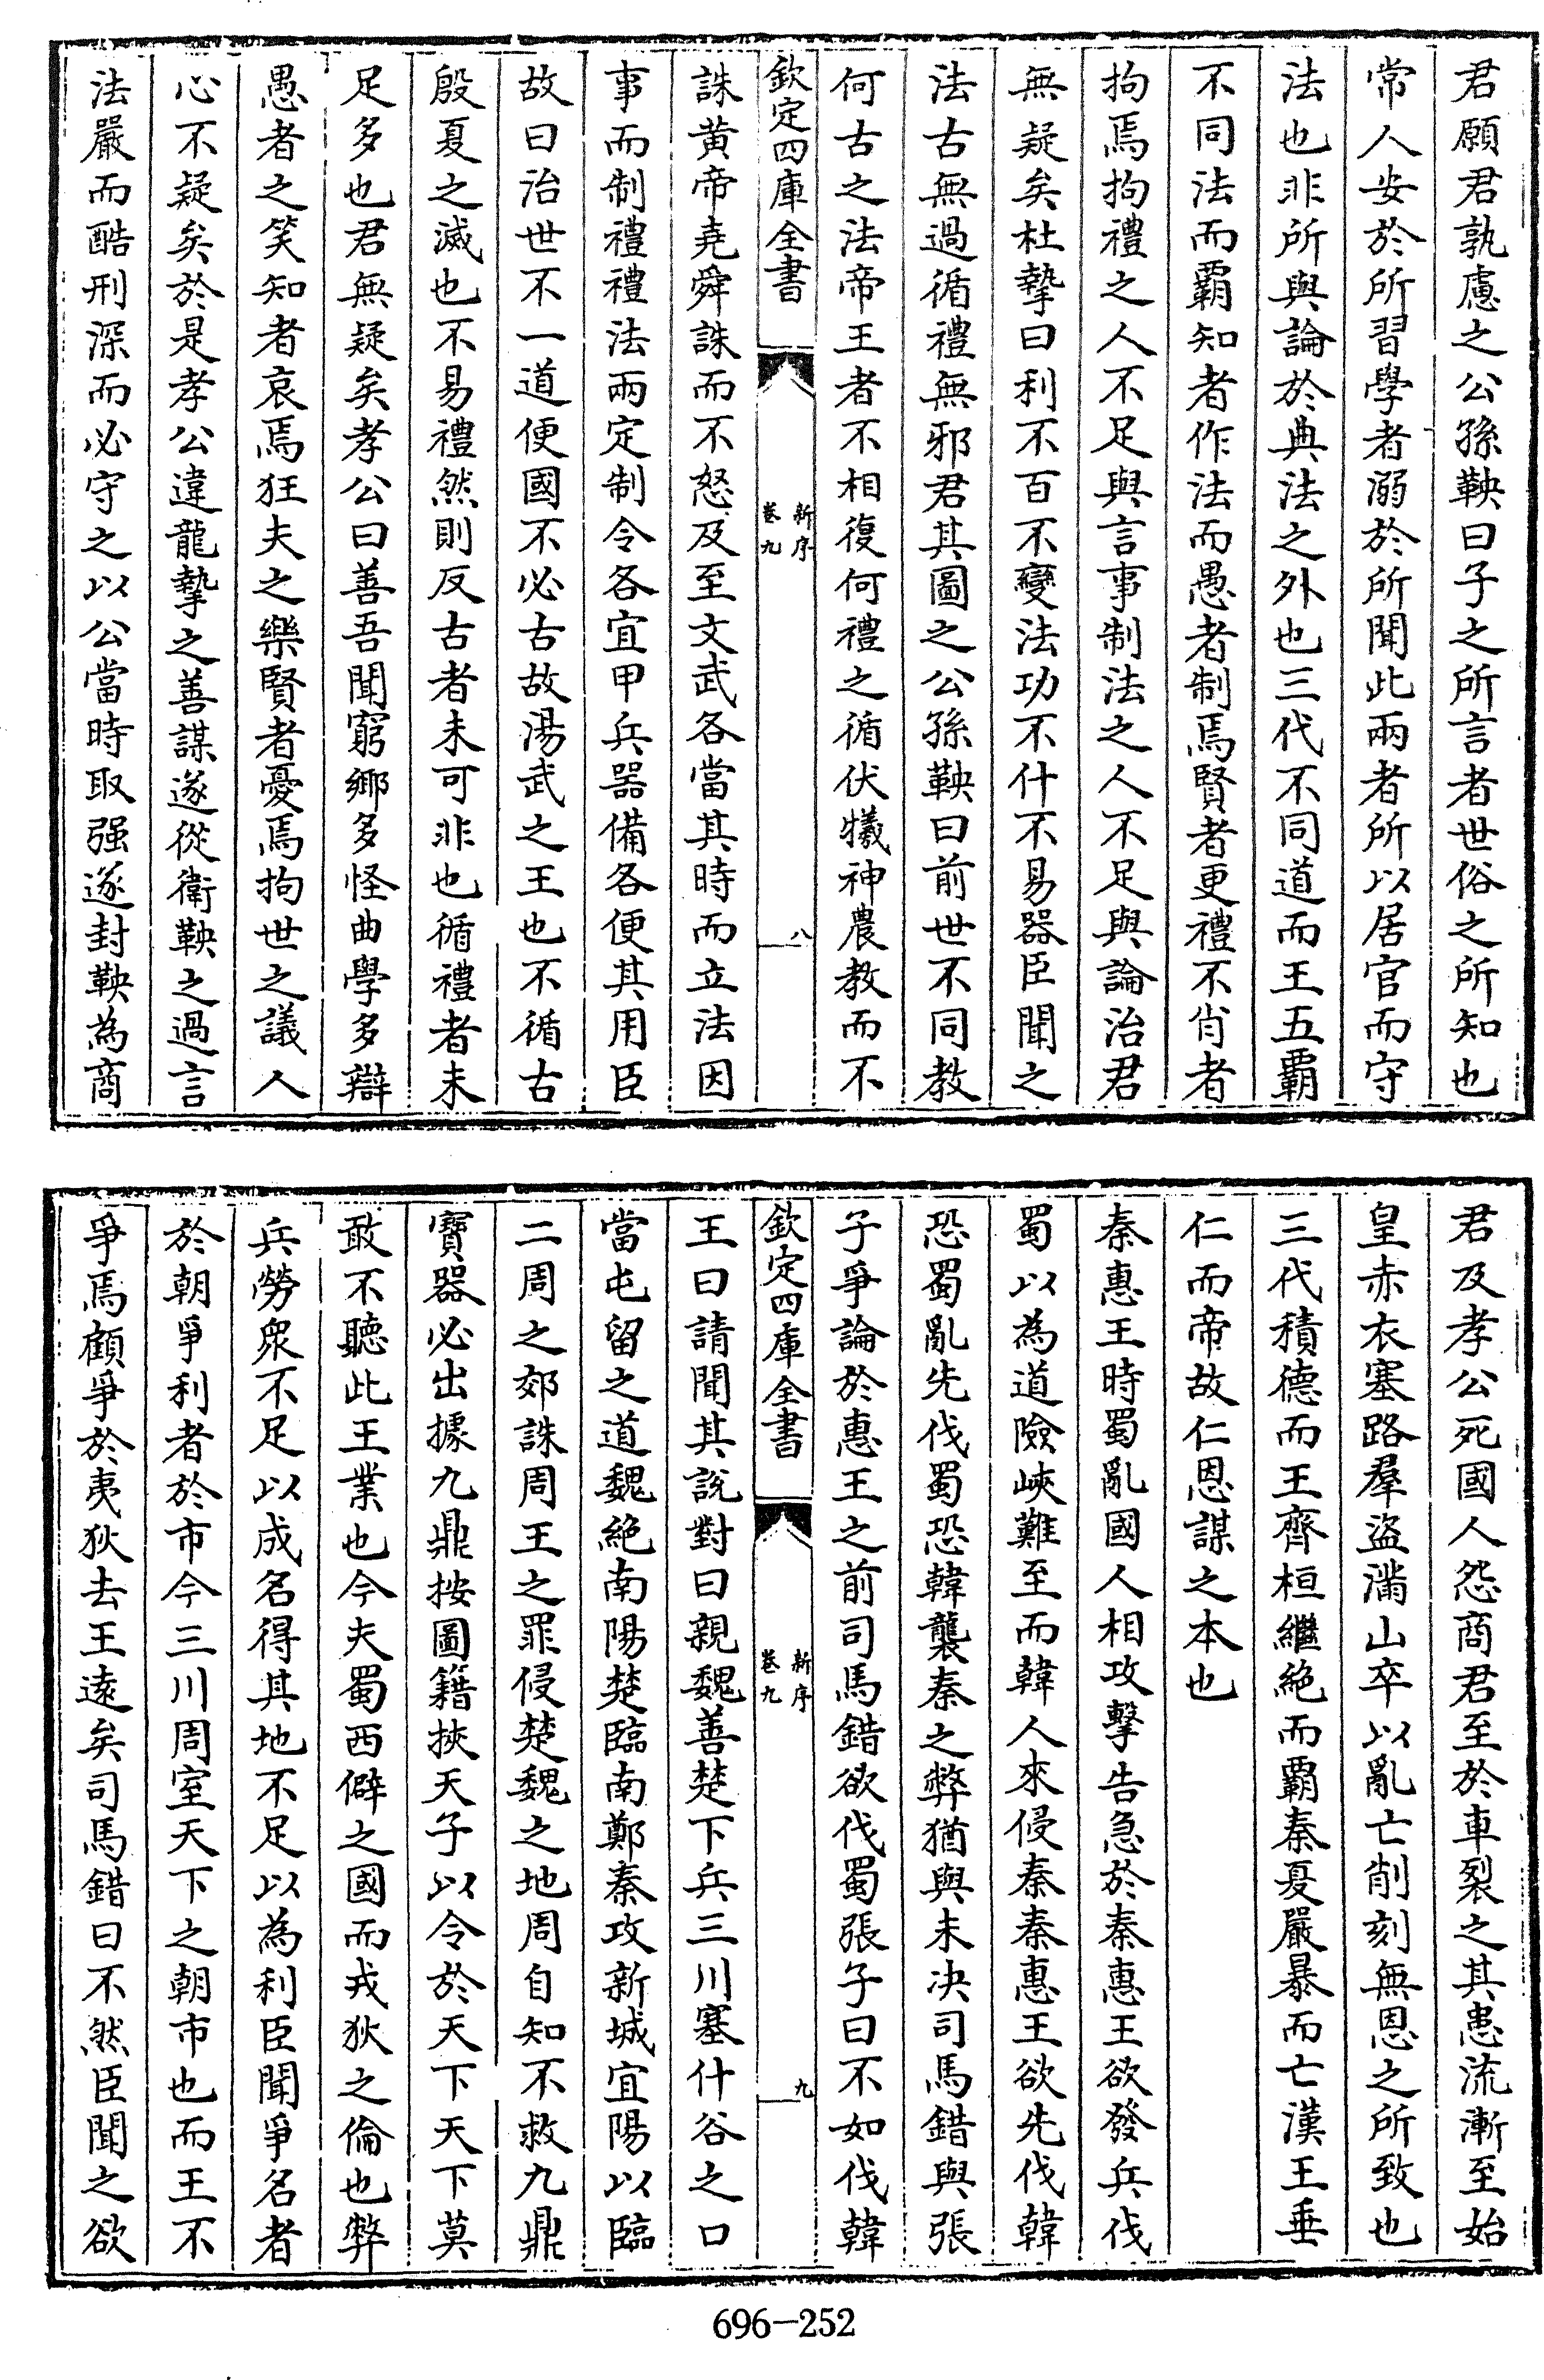 君願君孰慮之公孫鞅曰子之所言者世俗之所知也
常人安於所習學者溺於所聞此兩者所以居官而守
法也非所與論於典法之外也三代不同道而王五霸
不同法而霸知者作法而愚者制焉賢者更禮不肖者
拘焉拘禮之人不足與言事制法之人不足與論治君
無疑矣杜摯曰利不百不變法功不什不易器臣聞之
法古無過循禮無邪君其圖之公孫鞅曰前世不同教
何古之法帝王者不相復何禮之循伏犧神農教而不
欽定四庫全書
新序
卷九
八
誅黄帝堯舜誅而不怒及至文武各當其時而立法因
事而制禮禮法兩定制令各宜甲兵器備各便其用臣
故曰治世不一道便國不必古故湯武之王也不循古
殷夏之滅也不易禮然則反古者未可非也循禮者未
足多也君無疑矣孝公曰善吾聞窮鄉多怪曲學多辯
愚者之笑知者哀焉狂夫之樂賢者憂焉拘世之議人
心不疑矣於是孝公違龍摯之善謀遂從衛鞅之過言
法嚴而酷刑深而必守之以公當時取强遂封鞅為商
君及孝公死國人怨商君至於車裂之其患流漸至始
皇赤衣塞路羣盜滿山卒以亂亡削刻無恩之所致也
三代積德而王齊桓繼絶而霸秦夏嚴暴而亡漢王垂
仁而帝故仁恩謀之本也
秦惠王時蜀亂國人相攻擊告急於秦惠王欲發兵伐
蜀以為道險峽難至而韓人來侵秦秦惠王欲先伐韓
恐蜀亂先伐蜀恐韓襲秦之弊猶與未决司馬錯與張
子爭論於惠王之前司馬錯欲伐蜀張子曰不如伐韓
欽定四庫全書
新序
卷九
九
王曰請聞其說對曰親魏善楚下兵三川塞什谷之口
當屯留之道魏絶南陽楚臨南鄭秦攻新城宜陽以臨
二周之郊誅周王之罪侵楚魏之地周自知不救九鼎
寶器必出據九鼎按圖籍挾天子以令於天下天下莫
敢不聽此王業也今夫蜀西僻之國而戎狄之倫也弊
兵勞衆不足以成名得其地不足以為利臣聞爭名者
於朝爭利者於市今三川周室天下之朝市也而王不
爭焉顧爭於夷狄去王遠矣司馬錯曰不然臣聞之欲
696-252